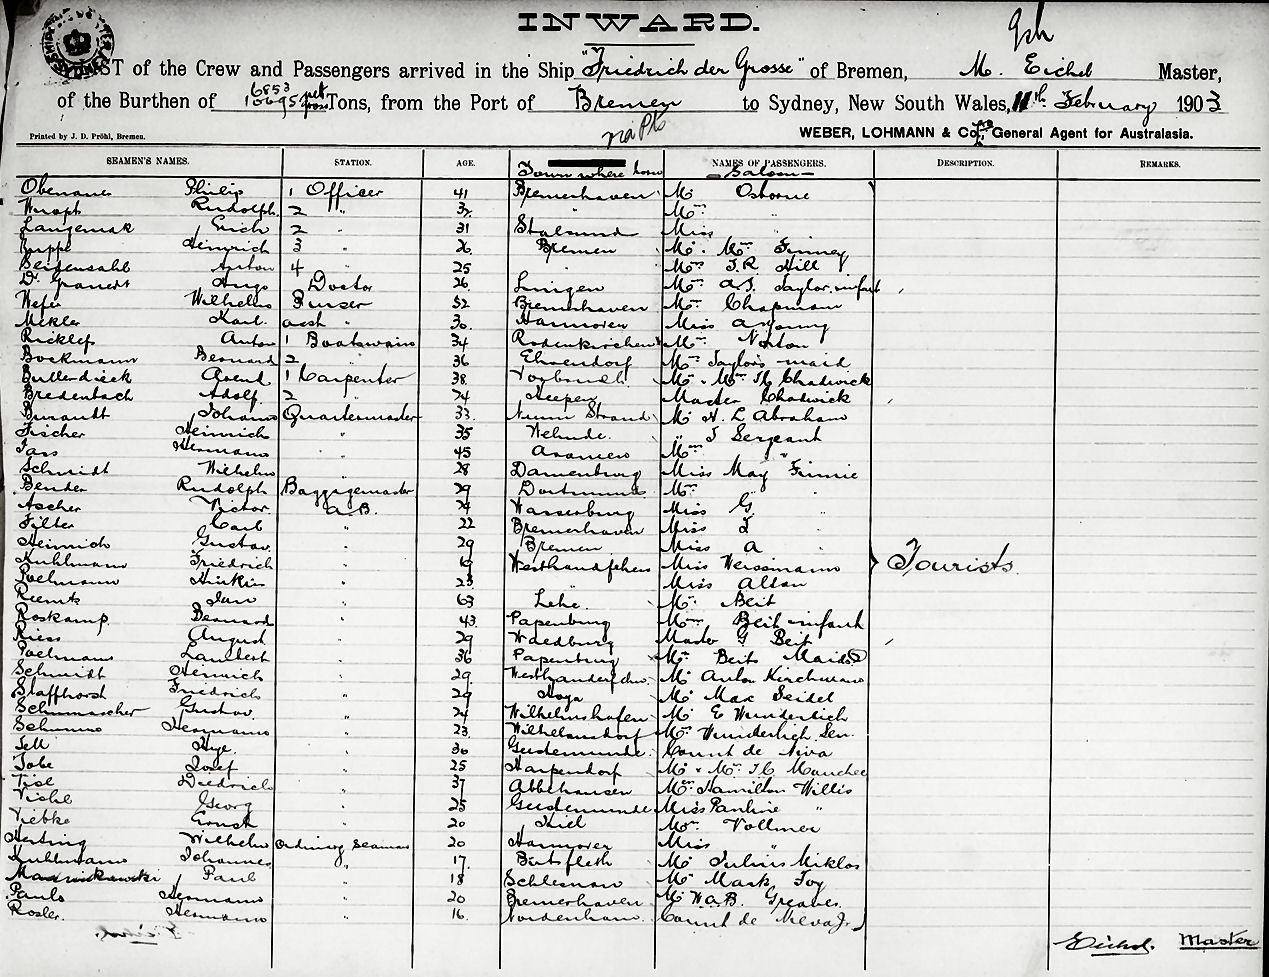 INWARD.
LIST of the Crew and Passengers arrived in the Ship "Friedrich der Grosse" of Bremen, M. Eichel Master,
of the Burthen of 6853 net 10695 gross Tons, from the Port of Bremen to Sydney, New South Wales, 11th February 1903
via Pts
Printed by J. D. Pröhl, Bremen. WEBER, LOHMANN & Co., General Agent for Australasia.
SEAMEN'S NAMES. STATION. AGE. Town where born NAMES OF PASSENGERS. DESCRIPTION. REMARKS.
Saloon
Philip 1 Officer 41 Bremerhaven Mr Osborne
Rudolph 2 " 32 " Mrs "
Langemak Erich 2 " 31 Stralsund Miss "
Heinrich 3 " 26 Bremen Mr. Mrs Finney
Anton 4 " 25 " Mrs F.R. Hill
Dr Hugo Doctor 26 Lingen Mrs A.J. Taylor, infant
Wilhelm Purser 52 Bremerhaven Mrs Chapman
Mikler Karl. asst " 30 Hannover Miss Young
Ricklef Anton 1 Boatswain 34 Rodenkirchen Mrs Norton
Bockmann Bernard 2 " 36 Mrs Taylor's maid
Butterdieck Arend 1 Carpenter 38 Mr. Mrs Chadwick
Bredenbach Adolf 2 " 24 Heepen Master Chadwick
Johann Quartermaster 33 Mr H. L Abraham
Fischer Heinrich " 35 " J Sergeant
Hermann " 45 Mrs "
Schmidt Wilhelm " 28 Miss May Finnie
Bender Rudolph Baggagemaster 29 Dortmund Mrs "
Ascher Victor A.B. 24 Wasserburg Miss G. "
Filter Carl " 22 Bremerhaven Miss "
Heinrich Gustav " 29 Bremen Miss A "
Kuhlmann Friedrich " 19 Miss Weissmann Tourists
Poelmann " 23 " Miss Alton
Jan " 63 Lehe Mr Beit
Roskamp Bernard " 43 Papenburg Mrs Beit infant
Riess August " 29 Waldburg Master G Beit
Poelmann Lambert " 36 Papenburg Mrs Beits Maids 2
Schmidt Heinrich " 29 Mr Anton Kirchmann
Staffhorst Friedrich " 29 Hoya Mr Max Seidel
Schumacher Gustav. " 24 Wilhelmshafen Mr E Wunderlich
Hermann " 23 Wilhelmsdorf Mrs Wunderlich Sen.
Tell " 30 Geestemunde Count de
Tobe Josef " 25 Harpendorf Mr. Mrs
Diedrich " 37 Abbehausen Mrs Hamilton Willis
Georg " 25 Geestemunde Miss Pauline "
Viebke Ernst " 20 Kiel Mrs Vollmer
Hertzing Wilhelm Ordinary Seaman 20 Hannover Miss "
Kuhlmann Johannes " 17 Mr Julius Miklos
Paul " 18 Mr Mark Foy
Pauls Hermann " 20 Bremerhaven Mr W.A.B. Greaves
Rosler Hermann " 16 Nordenham Count de Jr
Eichel. Master